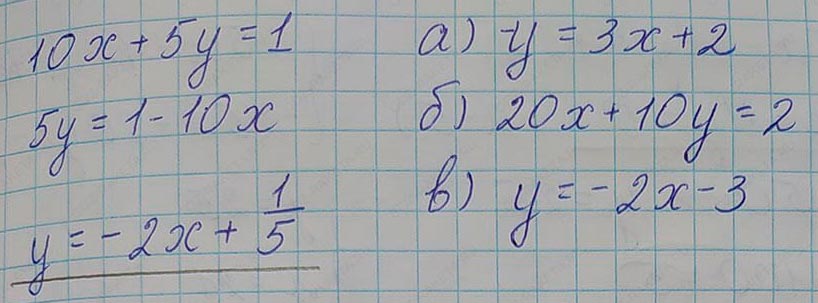 10x + 5y = 1
5y = 1 - 10x
y = -2x + 1/5
а) y = 3x + 2
б) 20x + 10y = 2
в) y = -2x - 3